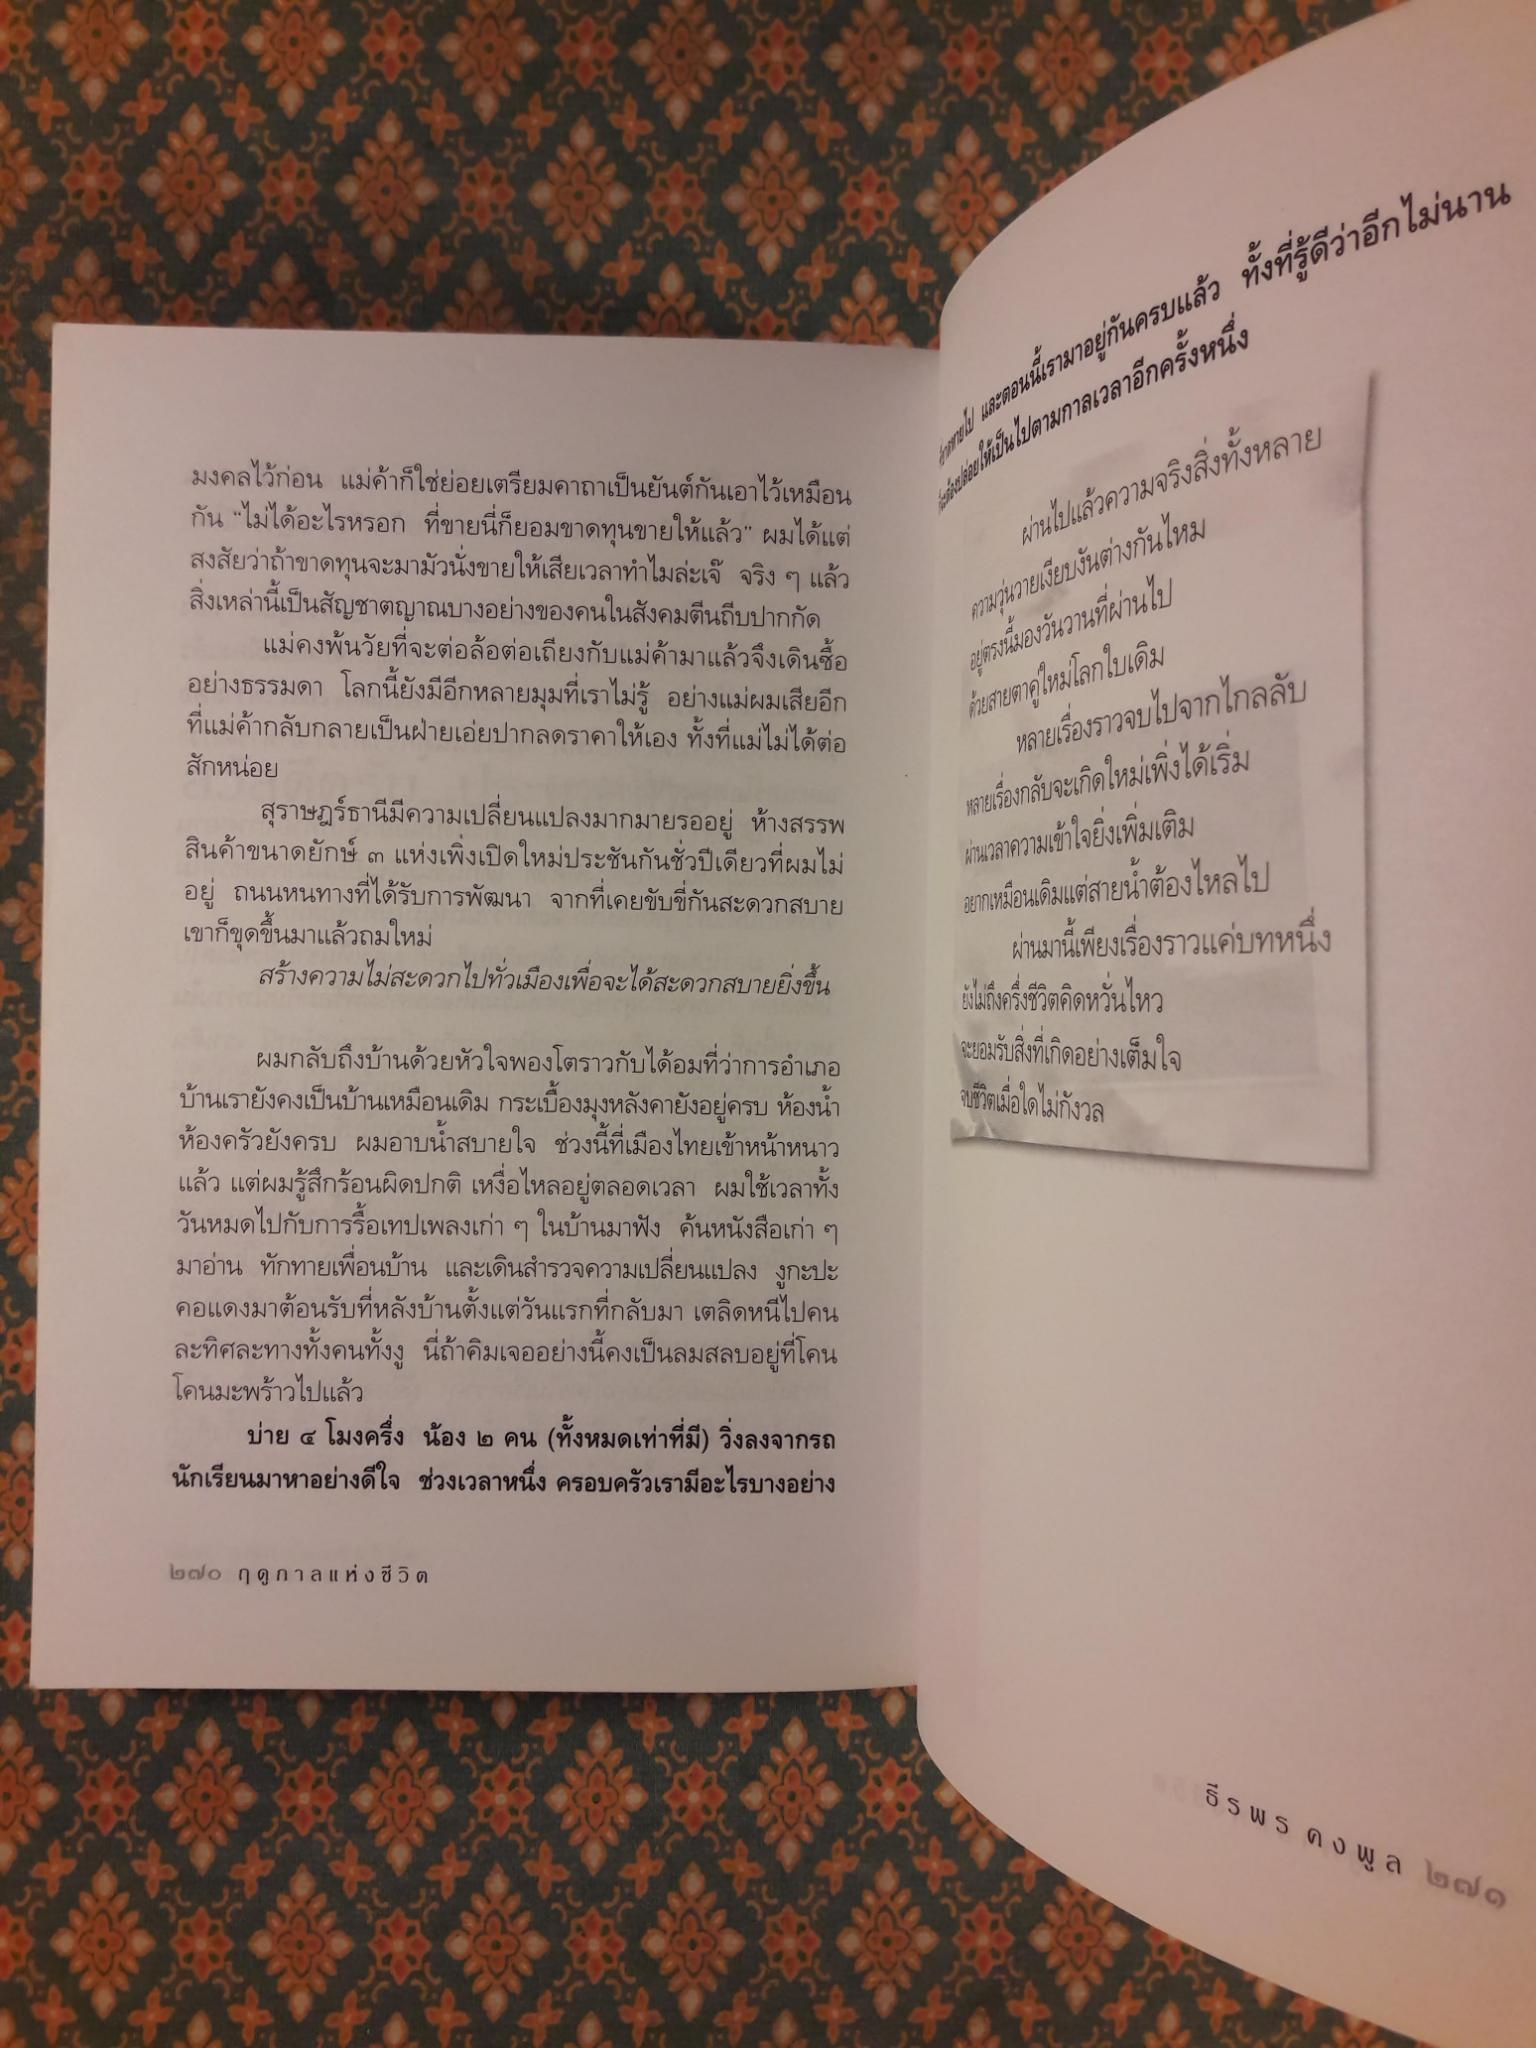 มงคลไว้ก่อน แม่ค้าก็ใช่ย่อยเตรียมคาถาเป็นยันต์กันเอาไว้เหมือน
กัน "ไม่ได้อะไรหรอก ที่ขายนี่ก็ยอมขาดทุนขายให้แล้ว" ผมได้แต่
สงสัยว่าถ้าขาดทุนจะมามัวนั่งขายให้เสียเวลาทำไมล่ะเจ๊ จริง ๆ แล้ว
สิ่งเหล่านี้เป็นสัญชาตญาณบางอย่างของคนในสังคมตีนถีบปากกัด
แม่คงพ้นวัยที่จะต่อล้อต่อเถียงกับแม่ค้ามาแล้วจึงเดินซื้อ
อย่างธรรมดา โลกนี้ยังมีอีกหลายมุมที่เราไม่รู้ อย่างแม่ผมเสียอีก
ที่แม่ค้ากลับกลายเป็นฝ่ายเอ่ยปากลดราคาให้เอง ทั้งที่แม่ไม่ได้ต่อ
สักหน่อย
สุราษฎร์ธานีมีความเปลี่ยนแปลงมากมายรออยู่ ห้างสรรพ
สินค้าขนาดยักษ์ ๓ แห่งเพิ่งเปิดใหม่ประชันกันชั่วปีเดียวที่ผมไม่
อยู่ ถนนหนทางที่ได้รับการพัฒนา จากที่เคยขับขี่กันสะดวกสบาย
เขาก็ขุดขึ้นมาแล้วถมใหม่
สร้างความไม่สะดวกไปทั่วเมืองเพื่อจะได้สะดวกสบายยิ่งขึ้น
ผมกลับถึงบ้านด้วยหัวใจพองโตราวกับได้อมที่ว่าการอำเภอ
บ้านเรายังคงเป็นบ้านเหมือนเดิม กระเบื้องมุงหลังคายังอยู่ครบ ห้องน้ำ
ห้องครัวยังครบ ผมอาบน้ำสบายใจ ช่วงนี้ที่เมืองไทยเข้าหน้าหนาว
แล้ว แต่ผมรู้สึกร้อนผิดปกติ เหงื่อไหลอยู่ตลอดเวลา ผมใช้เวลาทั้ง
วันหมดไปกับการรื้อเทปเพลงเก่า ๆ ในบ้านมาฟัง ค้นหนังสือเก่า ๆ
มาอ่าน ทักทายเพื่อนบ้าน และเดินสำรวจความเปลี่ยนแปลง งูกะปะ
คอแดงมาต้อนรับที่หลังบ้านตั้งแต่วันแรกที่กลับมา เตลิดหนีไปคน
ละทิศละทางทั้งคนทั้งงู นี่ถ้าคิมเจออย่างนี้คงเป็นลมสลบอยู่ที่โคน
โคนมะพร้าวไปแล้ว
บ่าย ๔ โมงครึ่ง น้อง ๒ คน (ทั้งหมดเท่าที่มี) วิ่งลงจากรถ
นักเรียนมาหาอย่างดีใจ ช่วงเวลาหนึ่ง ครอบครัวเรามีอะไรบางอย่าง
๒๗๐ ฤดูกาลแห่งชีวิต
และตอนนี้เรามาอยู่กันครบแล้ว ทั้งที่รู้ดีว่าอีกไม่นาน
ปล่อยให้เป็นไปตามกาลเวลาอีกครั้งหนึ่ง
ผ่านไปแล้วความจริงสิ่งทั้งหลาย
ความวุ่นวายเงียบงันต่างกันไหม
อยู่ตรงนี้มองวันวานที่ผ่านไป
ด้วยสายตาคู่ใหม่โลกใบเดิม
หลายเรื่องราวจบไปจากไกลลับ
หลายเรื่องกลับจะเกิดใหม่เพิ่งได้เริ่ม
ผ่านเวลาความเข้าใจยิ่งเพิ่มเติม
อยากเหมือนเดิมแต่สายน้ำต้องไหลไป
ผ่านมานี้เพียงเรื่องราวแค่บทหนึ่ง
ยังไม่ถึงครึ่งชีวิตคิดหวั่นไหว
จะยอมรับสิ่งที่เกิดอย่างเต็มใจ
จบชีวิตเมื่อใดไม่กังวล
ธีรพร คงพูล ๒๗๑